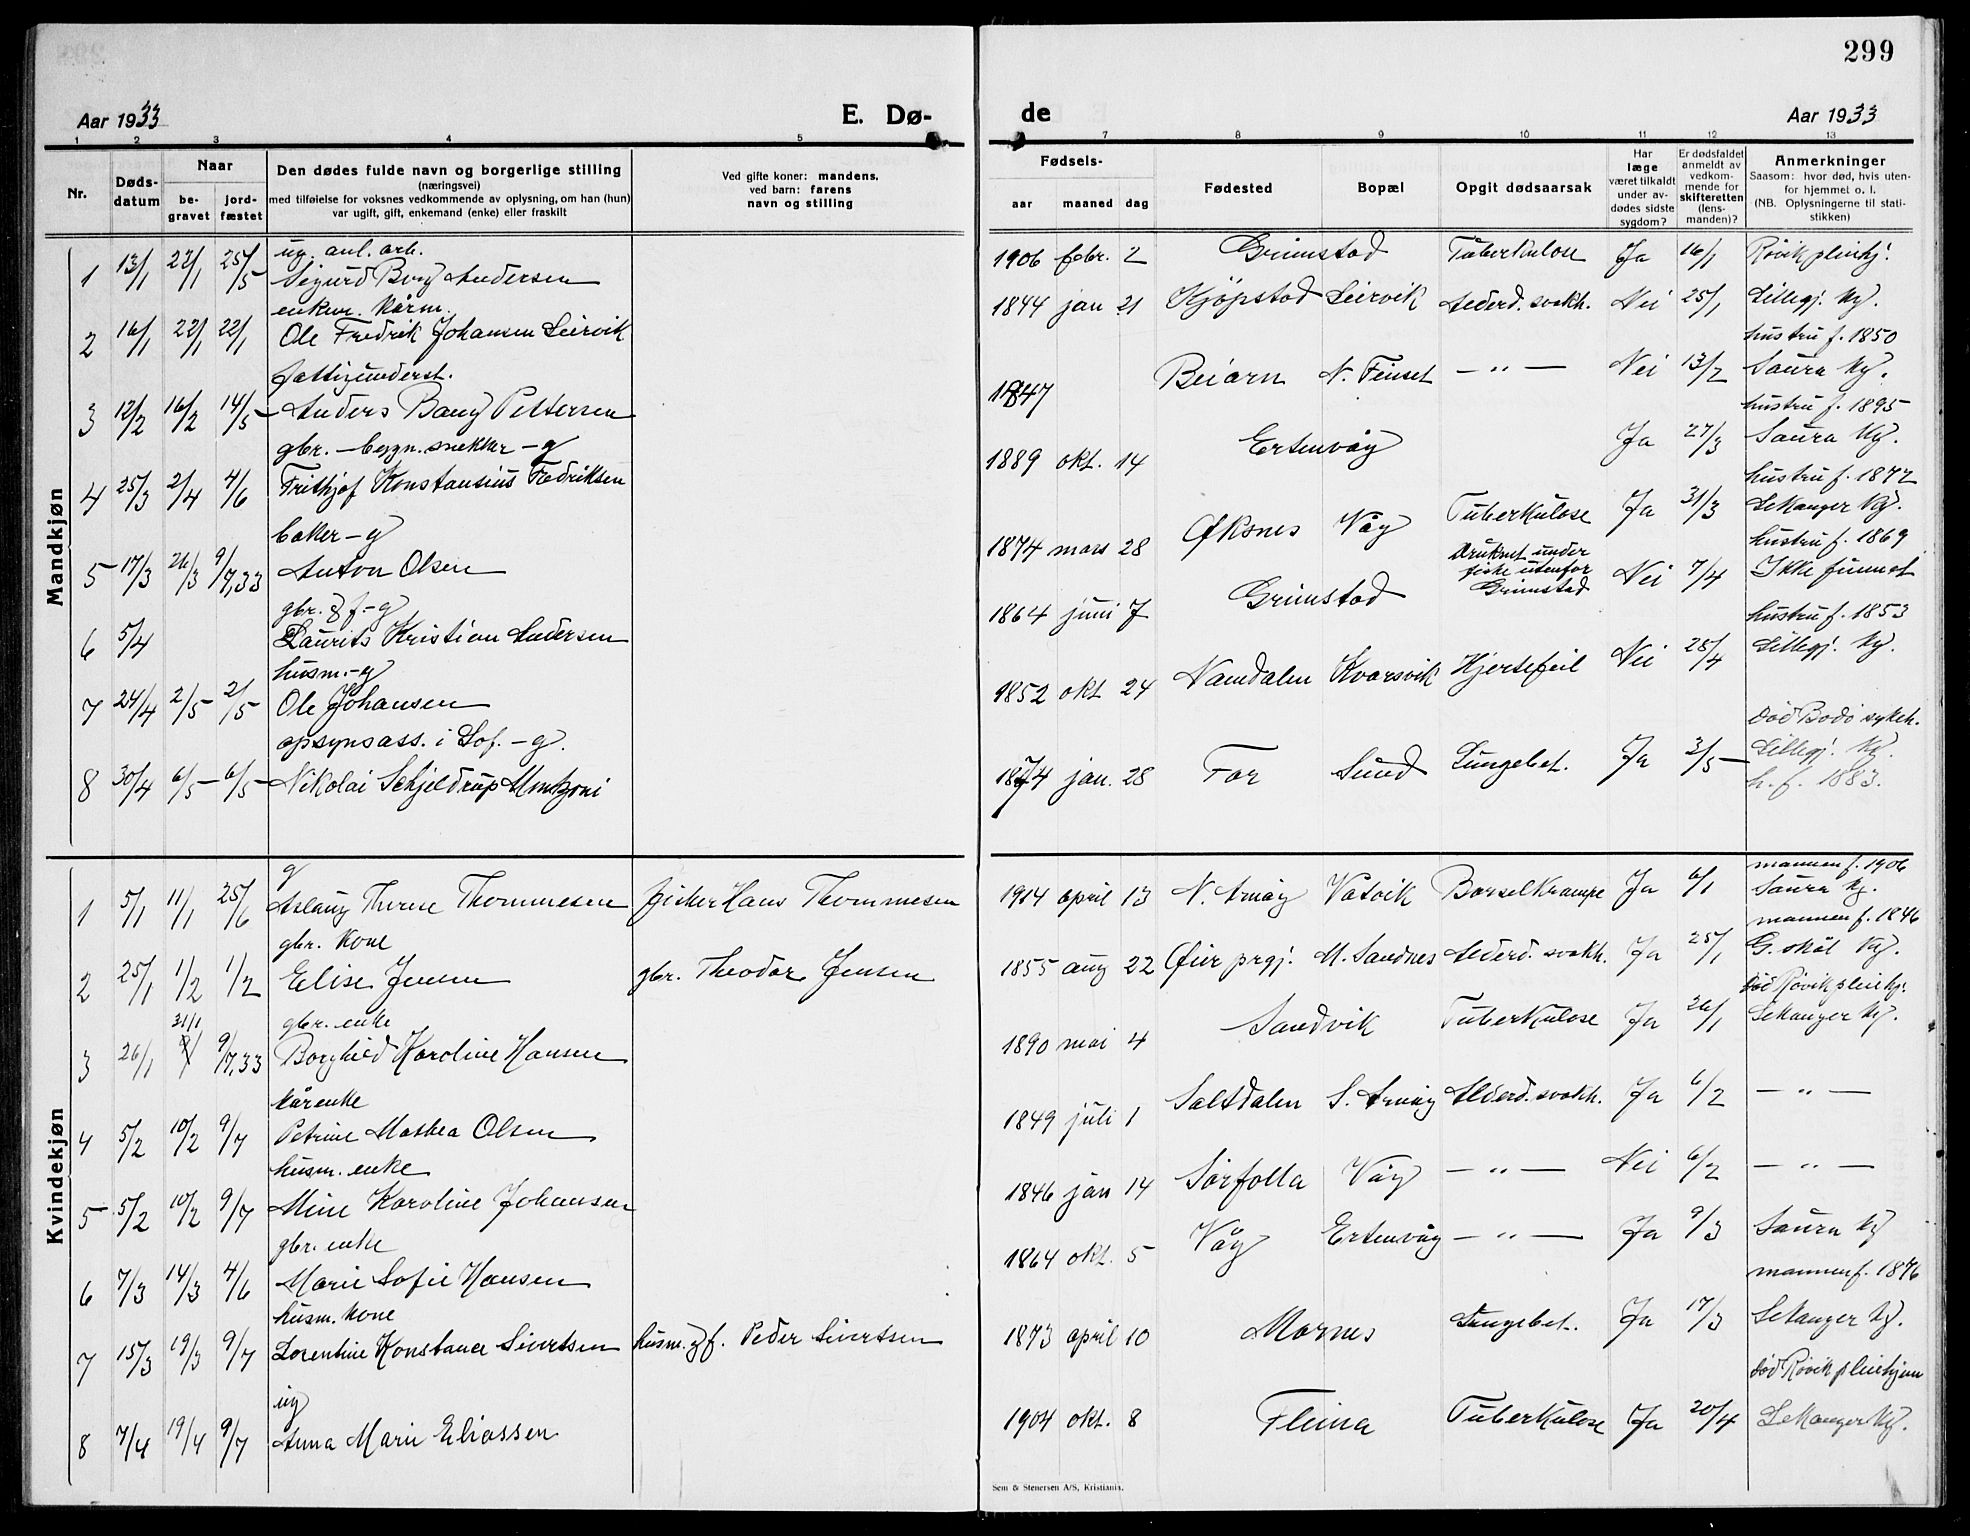 299
Aar 1933
E. Dø-
de
Aar 1933
1 2 3 4 5
7 8 9 10 11 12 13
Nr.
Døds-
datum
Naar
be-
gravet
jord-
fæstet
Den dødes fulde navn og borgerlige stilling
(næringsvei)
med tilføielse for voksnes vedkommende av oplysning, om han (hun)
var ugift, gift, enkemand (enke) eller fraskilt
Ved gifte koner: mandens,
ved barn: farens
navn og stilling
Fødsels-
aar maaned dag
Fødested
Bopæl
Opgit dødsaarsak
Har
læge
været tilkaldt
under av-
dødes sidste
sygdom?
Er dødsfaldet
anmeldt av
vedkom-
mende for
skifteretten
(lens-
manden)?
Anmerkninger
Saasom: hvor død, hvis uten-
for hjemmet o. l.
(NB. Oplysningerne til stati-
stikken)
Mandkjøn
ug. anl. arb.
1 13/1 22/1 25/5 Sigurd Borg Andersen 1906 febr. 2 Grimstad Tuberkulose Ja 16/1 Røvik pleiehj.
enkem. kårm.
2 16/1 22/1 22/1 Ole Fredrik Johansen Leirvik 1844 jan 21 Kjøpstad Leirvik Alderd. svakh. Nei 25/1 Lillegj. kg.
hustru f. 1850
fattigunderst.
3 12/2 16/2 14/5 Anders Bang Pettersen 1847 Beiarn N. Feiset — " — Nei 13/2 Saura kg.
hustru f. 1895
gbr. - bygn. snekker - g
4 25/3 2/4 4/6 Frithjof Konstansius Fredriksen 1889 okt. 14 Ertenvåg Ja 27/3 Saura kg.
hustru f. 1872
baker - g
5 17/3 26/3 9/7,33 Anton Olsen 1874 mars 28 Øksnes Våg Tuberkulose Ja 31/3 Lekanger kg.
hustru f. 1869
gbr. & f - g
6 5/4 Laurits Kristian Andersen 1864 juni 7 Grimstad Druknet under
fiske utenfor
Grimstad Nei 7/4 Ikke funnet
hustru f. 1853
husm. - g
7 24/4 2/5 2/5 Ole Johansen 1852 okt 24 Namdalen Kvarsvik Hjertefeil Nei 25/4 Lillegj. kg.
død Bodø sykeh.
opsynsass. i Lof. - g.
8 30/4 6/5 6/5 Nikolai Schjeldrup Montzoni 1874 jan. 28 Far Sund Lungebet. Ja 3/5 Lillegj. kg.
h. f. 1883.
Kvindekjøn
g
mannen f. 1906
1 5/1 11/1 25/6 Aslaug Therese Thommesen fisker Hans Thommesen 1914 april 13 N. Arnøy Vatvik Barselkrampe Ja 6/1 Saura kg.
mannen f. 1846
gbr. kone
2 25/1 1/2 1/2 Elise Jensen gbr. Theodor Jensen 1855 aug 22 Øier prgj. M. Sandnes Alderd. svakh. Ja 25/1 G. skål kg.
død Røvik pleiehj.
gbr. enke
31/1
3 26/1 9/7,33 Borghild Karoline Hansen 1890 mai 4 Sandvik Tuberkulose Ja 26/1 Lekanger kg.
kårenke
4 5/2 10/2 9/7 Petrine Mathea Olsen 1849 juli 1 Saltdalen S. Arnøy Alderd. svakh. Ja 6/2 — " —
husm. enke
5 5/2 10/2 9/7 Mine Karoline Johansen 1846 jan 14 Sørfolla Våg — " — Nei 6/2 — " —
gbr. enke
6 7/3 14/3 4/6 Marie Sofie Hansen 1864 okt. 5 Våg Ertenvåg — " — Ja 9/3 Saura kg
mannen f. 1876
husm. kone
7 15/3 19/3 9/7 Lorentine Konstance Sivertsen husm. & f. Peder Sivertsen 1873 april 10 Mornes Lungebet. Ja 17/3 Lekanger kg.
død Røvik pleiehjem
ug
8 7/4 19/4 9/7 Anna Marie Eliassen 1904 okt. 8 Fleina Tuberkulose Ja 20/4 Lekanger kg.
Sem & Stenersen A/S, Kristiania.